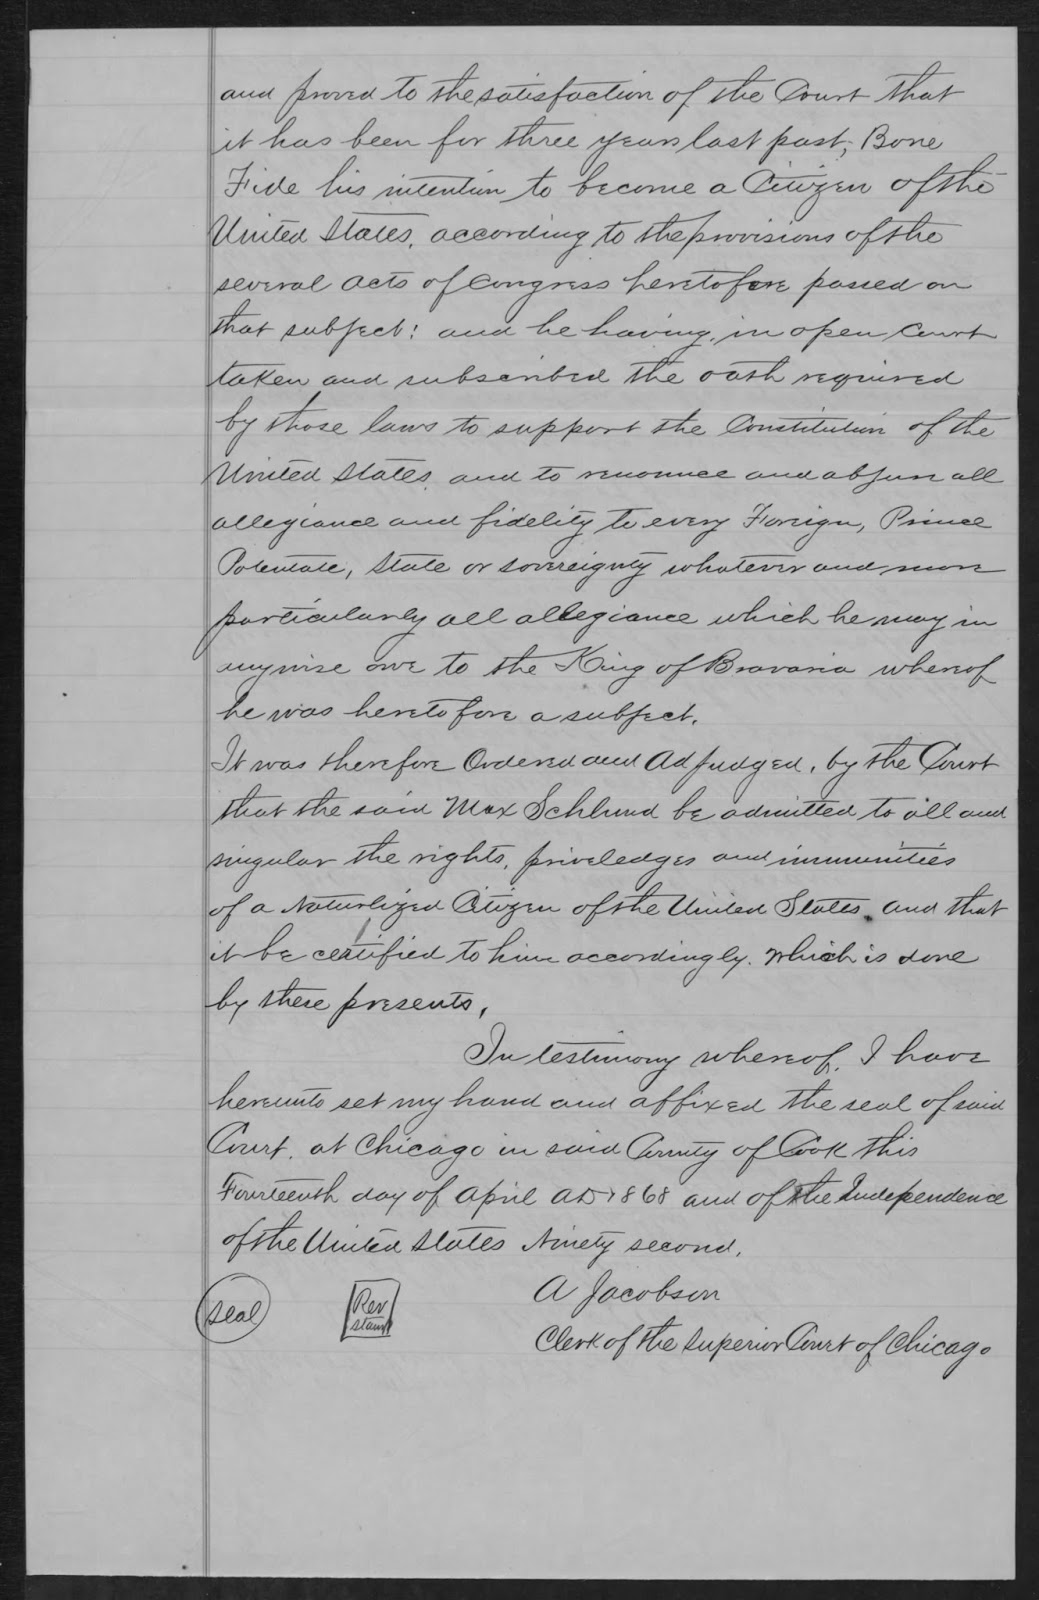 and proved to the satisfaction of the Court that
it has been for three years last past, Bone
Fide his intention to become a Citizen of the
United States, according to the provisions of the
several acts of Congress heretofore passed on
that subject: and he having, in open Court
taken and subscribed the oath required
by those laws to support the Constitution of the
United States, and to renounce and abjure all
allegiance and fidelity to every Foreign, Prince
Potentate, State or sovereignty whatever and more
particularly all allegiance which he may in
anywise owe to the King of Bravaria whereof
he was heretofore a subject.
It was therefore Ordered and Adjudged, by the Court
that the said Max Schlund be admitted to all and
singular the rights, priveledges and immunities
of a Naturlized Citizen of the United States, and that
it be certified to him accordingly. Which is done
by these presents,
In testimony whereof, I have
hereunto set my hand and affixed the seal of said
Court, at Chicago in said County of Cook this
Fourteenth day of April AD 1868 and of the Independence
of the United States Ninety second.
A Jacobson
Seal
Rev
stamp
Clerk of the Superior Court of Chicago